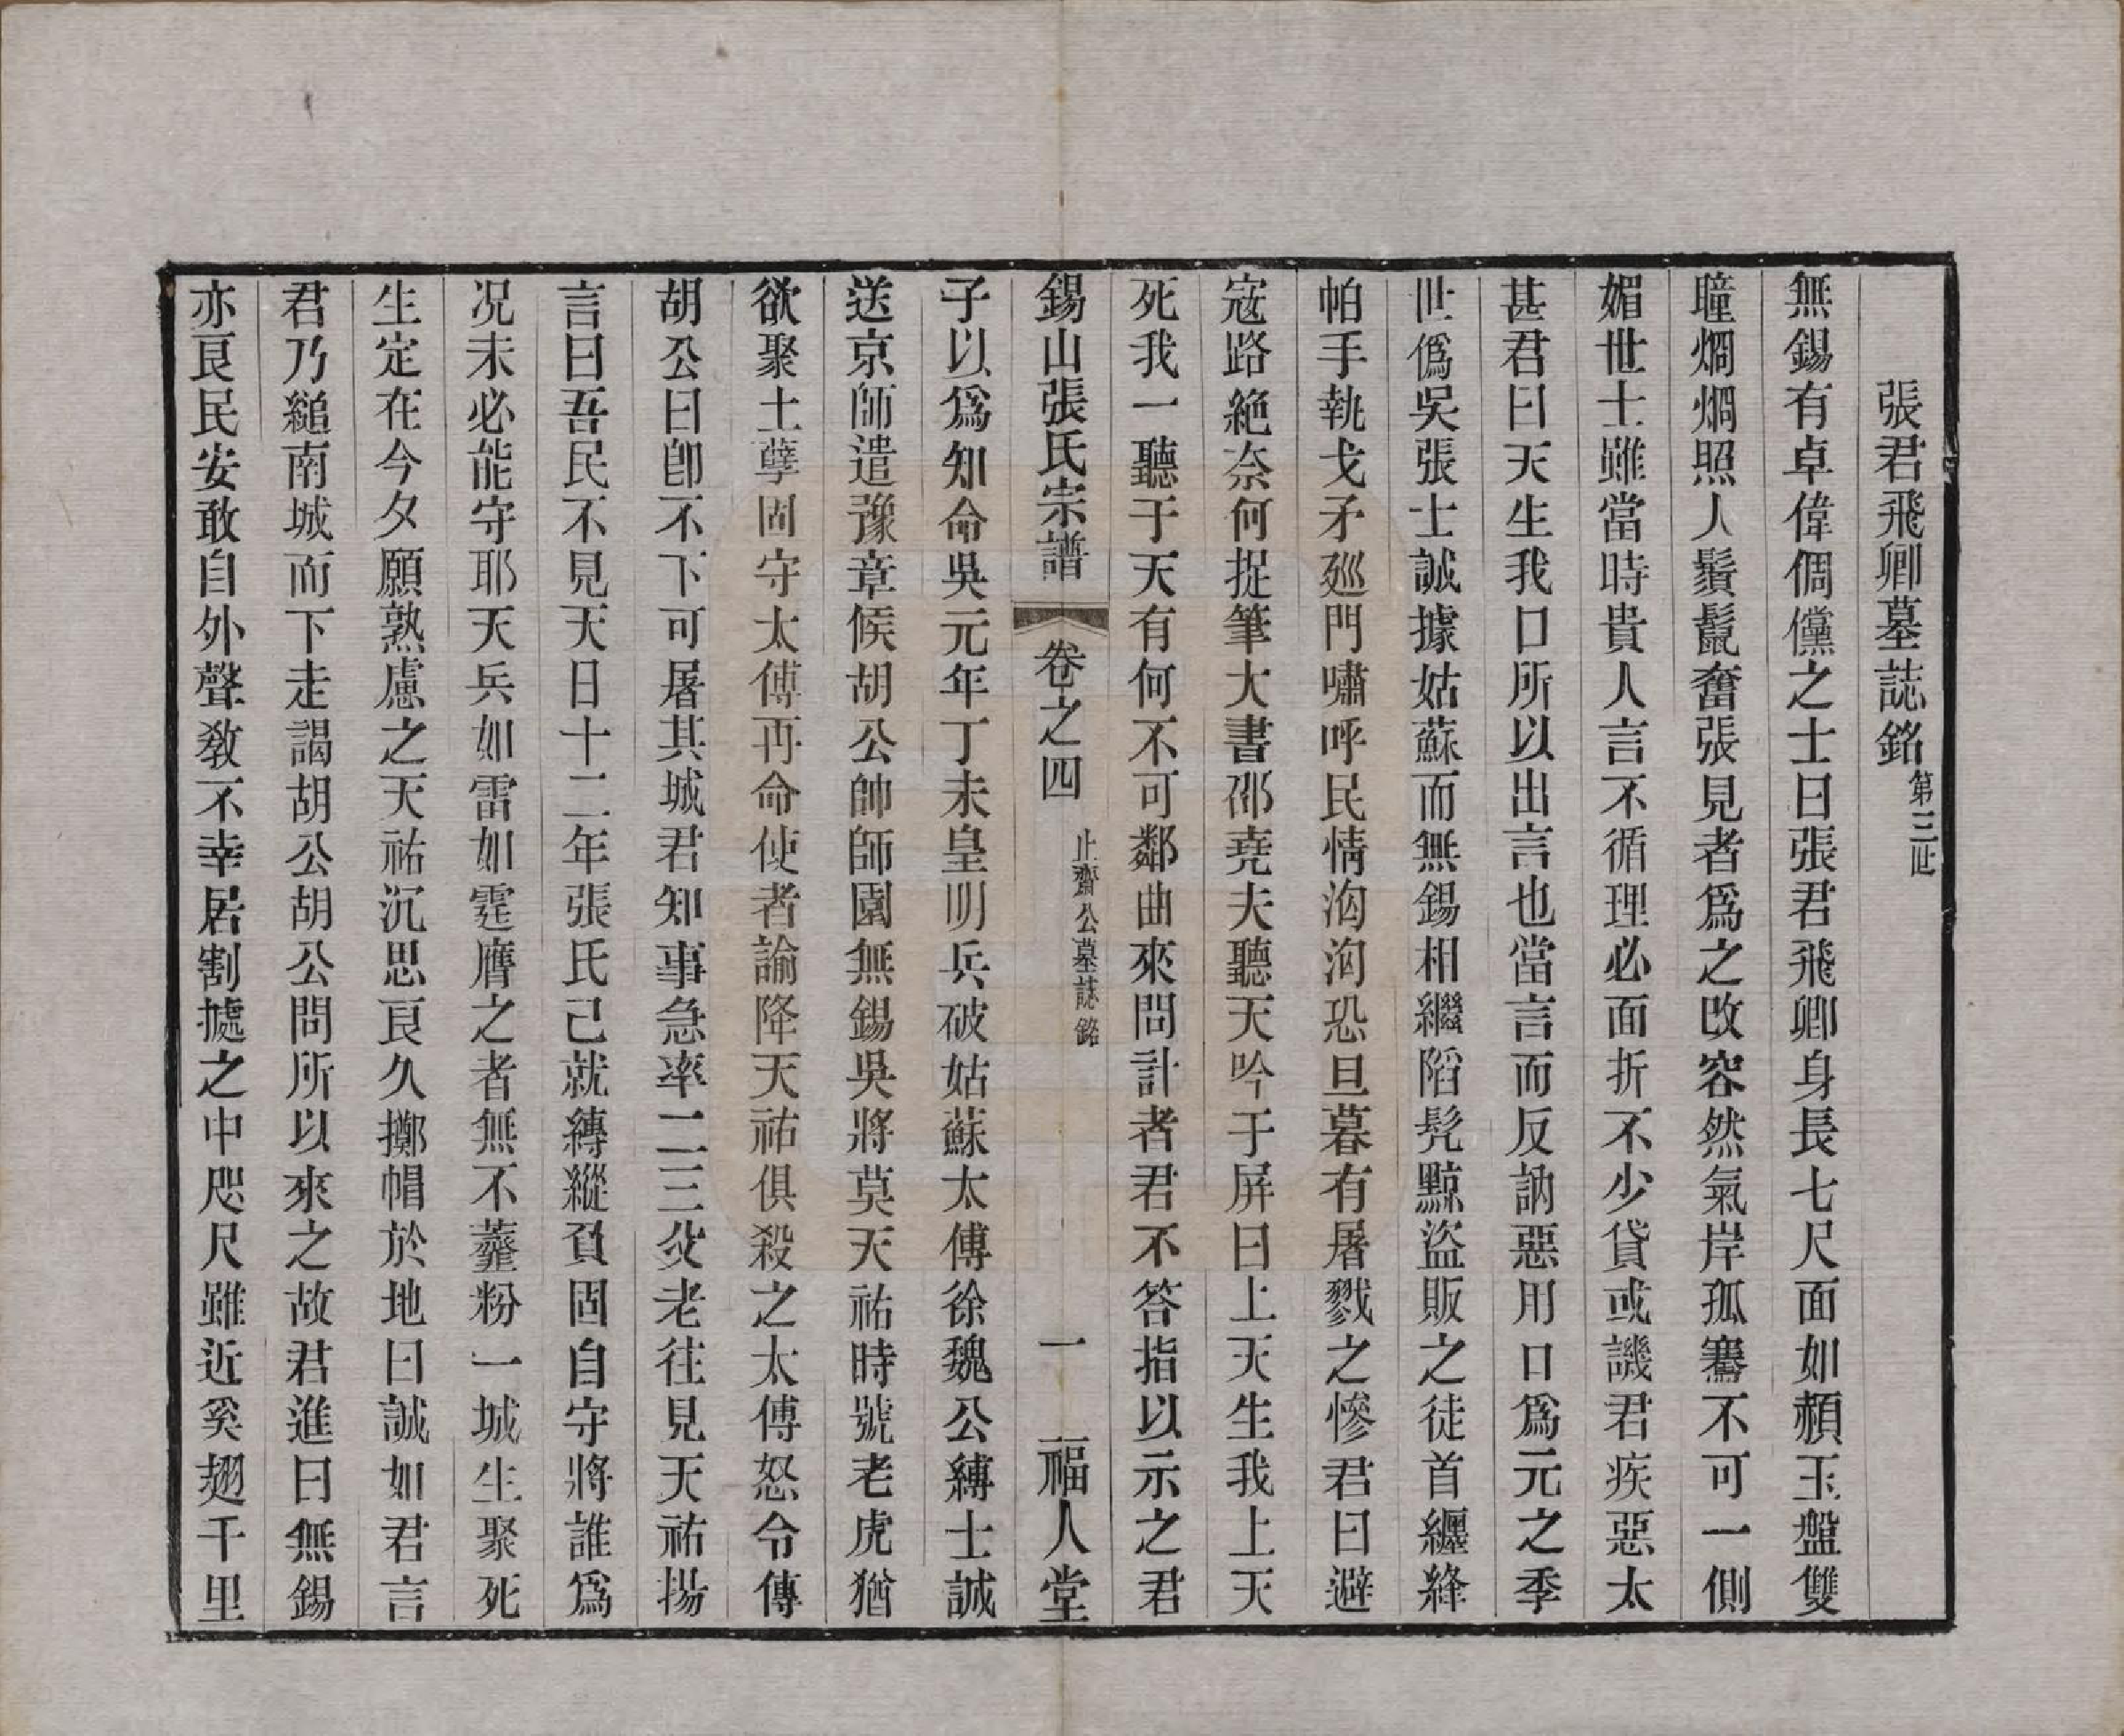 張君飛卿墓誌銘第三世
無錫有卓偉倜儻之士曰張君飛卿身長七尺面如頳玉盤雙
瞳烱烱照人鬚鬣奮張見者爲之改容然氣岸孤騫不可一側
媚世士雖當時貴人言不循理必面折不少貸或譏君疾惡太
甚君曰天生我口所以出言也當言而反訥惡用口爲元之季
世僞吳張士誠據姑蘇而無錫相繼陷髡黥盜販之徒首纒絳
帕手執戈矛廵門嘯呼民情洶洶恐旦暮有屠戮之慘君曰避
寇路絶奈何捉筆大書邵堯夫聽天吟于屏曰上天生我上天
死我一聽于天有何不可鄰曲來問計者君不答指以示之君
錫山張氏宗譜 卷之四 止齋公墓誌銘 一 一福人堂
子以爲知命吳元年丁未皇明兵破姑蘇太傅徐魏公縛士誠
送京師遣豫章候胡公帥師圍無錫吳將莫天祐時號老虎猶
欲聚土孽固守太傅再命使者諭降天祐俱殺之太傅怒令傳
胡公曰卽不下可屠其城君知事急率二三父老往見天祐揚
言曰吾民不見天日十二年張氏已就縛縱負固自守將誰爲
况未必能守耶天兵如雷如霆膺之者無不虀粉一城生聚死
生定在今夕願熟慮之天祐沉思良久擲帽於地曰誠如君言
君乃縋南城而下走謁胡公胡公問所以來之故君進曰無錫
亦良民安敢自外聲教不幸居割㨿之中咫尺雖近奚翅千里